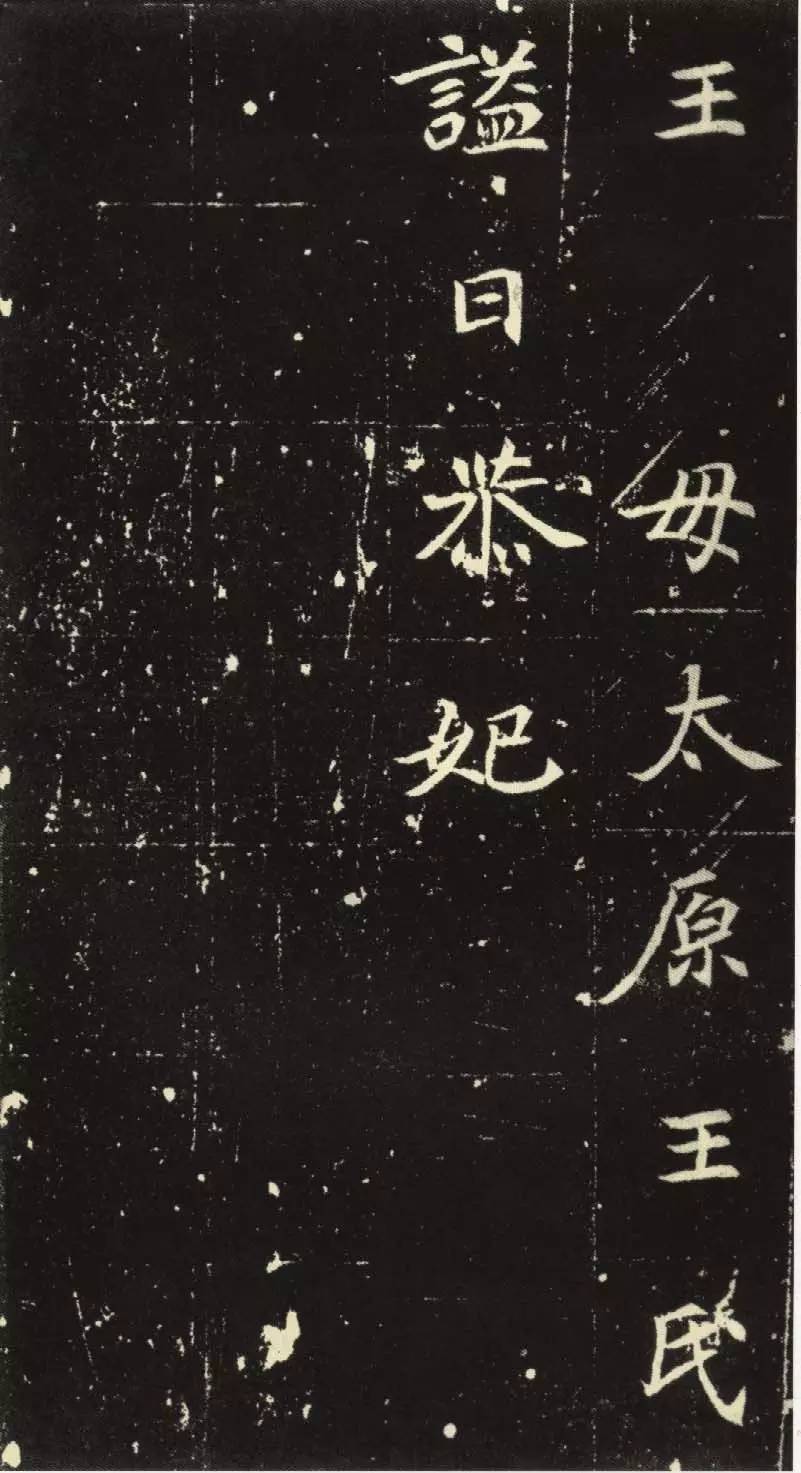 王 母太原王氏
謚曰恭妃